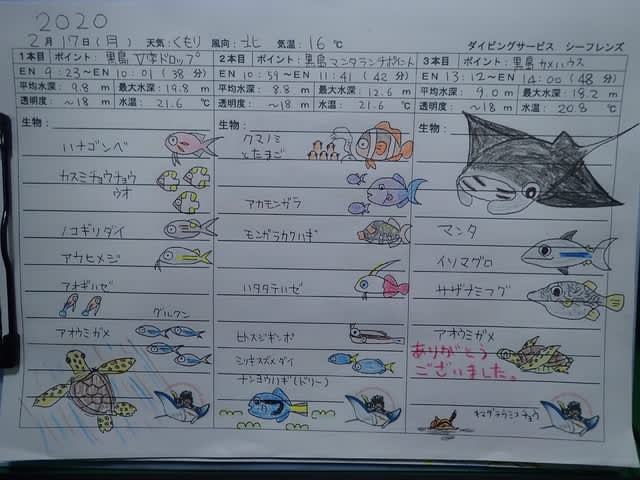 2020
2月17日(月) 天気:くもり 風向:北 気温:16℃ ダイビングサービス シーフレンズ
1本目 ポイント:黒島V字ドロップ
EN 9:23～EN 10:01(38分)
平均水深:9.8m 最大水深:19.8m
透明度:～18m 水温:21.6℃
生物:
ハナゴンベ
カスミチョウチョウ
ウオ
ノコギリダイ
アカヒメジ
アオギハゼ
グルクン
アオウミガメ
2本目 ポイント:黒島マンタランチポイント
EN 10:59～EN 11:41(42分)
平均水深:8.8m 最大水深:12.6m
透明度:～18m 水温:21.6℃
生物:
クマノミ
とたまご
アカモンガラ
モンガラカワハギ
ハタタテハゼ
ヒトスジギンポ
ミツキスズメダイ
ナンヨウハギ(ドリー)
3本目 ポイント:黒島カメハウス
EN 13:12～EN 14:00(48分)
平均水深:9.0m 最大水深:18.2m
透明度:～18m 水温:20.8℃
生物:
マンタ
イソマグロ
サザナミフグ
アオウミガメ
ありがとう
ございました。
キマダラウミコチョウ